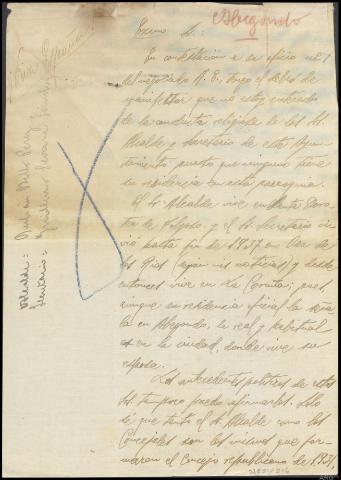 Abegondo
¡Viva España!
Excmo Sr:
En contestación a su oficio nº 1
del negociado R. E., tengo el deber de
manifestar que no estoy enterado
de la conducta religiosa de los Sr.
Alcalde y Secretario de este Ayun-
tamiento, puesto que ninguno tiene
su residencia en esta parroquia.
El Sr. Alcalde vive en
de Folgoso, y el Sr. Secretario vi-
vió hasta fin de 1937 en
los Ríos (según mis noticias) y desde
entonces vive en La Coruña; pues,
aunque su residencia oficial la seña-
la en Abegondo, la real y habitual
es en la ciudad, donde vive su
esposa.
Los antecedentes políticos de estos
Srs tampoco puedo afirmarlos. Solo
sí que tanto el Sr. Alcalde como los
Concejales son los mismos que for-
maron el Concejo republicano de 1931,
Alcalde:
Secretario: